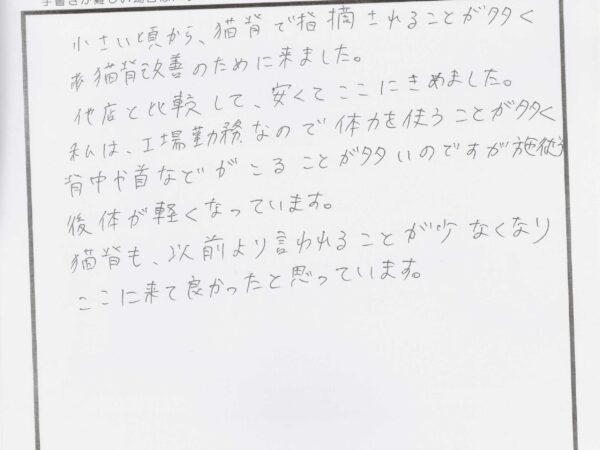 小さい頃から、猫背で指摘されることが多く
猫背改善のために来ました。
他店と比較して、安くてここにきめました。
私は、工場勤務なので体力を使うことが多く
背中や首などがこることが多いのですが施術
後体が軽くなっています。
猫背も、以前より言われることが少なくなり
ここに来て良かったと思っています。